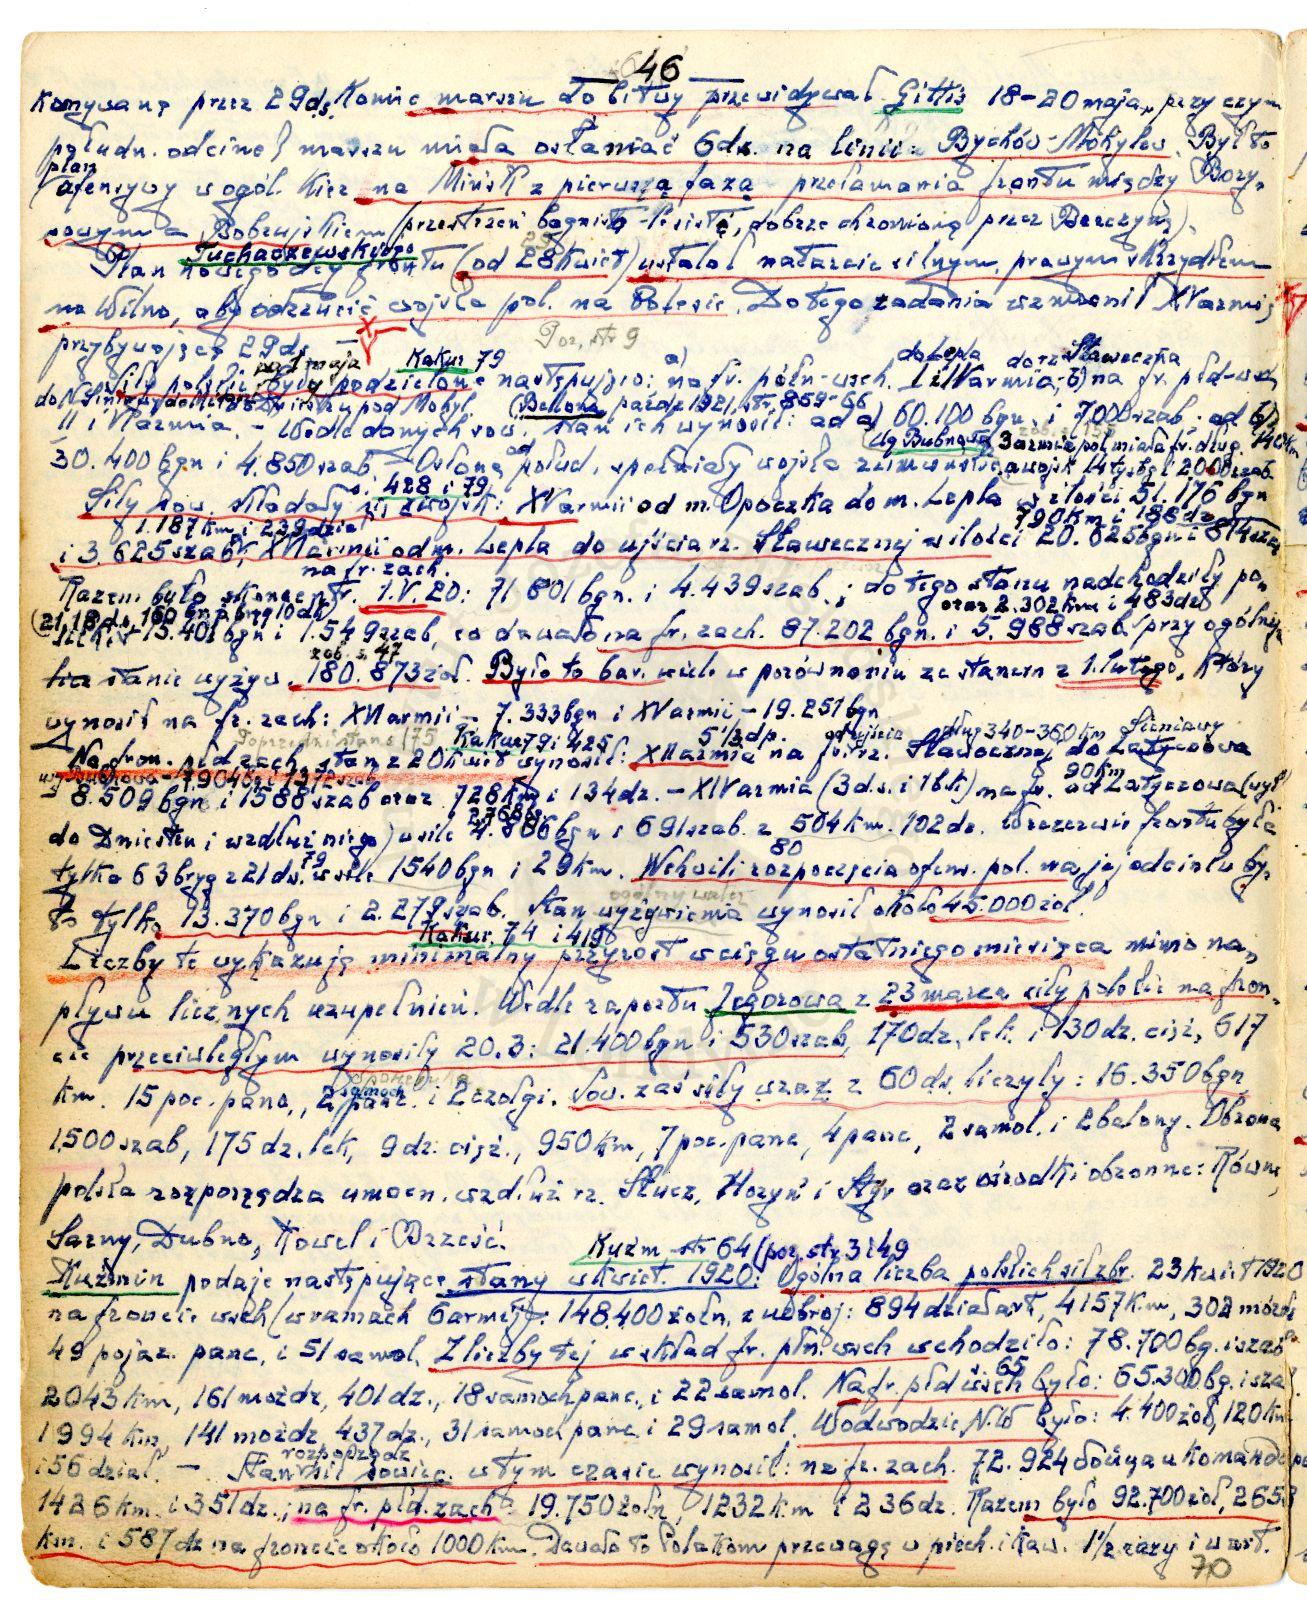 46
Konywaną przez 29ds. Koniec marszu do bitwy przewidywał Gittis 18-20 maja, przy czym
połudn. odcinek marszu miała osłaniać 6ds. na linii: Bychów-Mohylew. Był to
plan
ofensywy w ogól. kier. na Mińsk z pierwszą fazą przełamania frontu między Bory-
sowym a Bobrujskiem (przestrzeń bagnisto-lesistą, dobrze chronioną przez Berezynę).
Tuchaczewskiego
29
Plan nowego dcy frontu (od 28 kwiet) ustalał natarcie silnym, prawym skrzydłem
na Wilno, aby odrzucić wojska pol. na Polesie. Do tego zadania wzmocnił XV armię
przybywającą 29ds.
Por. str 9
na 1 maja Kakur 79 a) do Lepla do rz. Sławeczna
Siły polskie były podzielone następująco: na fr. półn-wsch. I i IV armia, b) na fr. płd-wsch
(Bellona paźdz 1921, str. 859-66
II i VI armia. - Wedle danych sow. stan ich wynosił: ad a) 60.100 bgn. i 7000 szab. ad b)
Wg Bubnowa 3 armie pol. miała fr. dług. 740 km
30.400 bgn i 4.850 szab. - Osłonę od połud. spełniały wojska rumuńskie
s. 428 i 79
Siły sow. składały się z wojsk: XV armii od m. Opoczka do m. Lepla w ilości 51.176 bgn
1.187 km. i 239 dział 790 km i 188 dz
i 3.625 szab, XVI armii od m. Lepla do ujścia rz. Sławecznej w ilości 20.625 bgn i 814 szab
na fr. zach.
Razem było skoncentr. 1.V.20: 71.801 bgn. i 4.439 szab.; do tego stanu nadchodziły po-
(21, 18 ds, 160 bryg. oraz 2.302 km i 483 dz
siłki 15.401 bgn i 1.549 szab, co dawało na fr. zach. 87.202 bgn. i 5.988 szab przy ogólnym
zob. s. 47
stanie wyżyw. 180.873 żoł. Było to bar. wiele w porównaniu ze stanem z 1. lutego, który
wynosił na fr. zach: XVI armii - 7.333 bgn i XV armii - 19.251 bgn
Poprzedni stan s. 175 Kakur 79 i 425 5 1/3 dp. od ujścia dług 340-360 km Sieniawy
Na fron. płd zach. stan z 20 kwiet wynosił: XII armia na fr. rz. Sławecznej do Latyczowa
90 km
8.509 bgn i 1588 szab oraz 728 km i 134 dz. - XIV armia (3 d.s. i 1 bk) na fr. od Latyczowa (wył
do Dniestru i wzdłuż niego) w sile 4.866 bgn i 691 szab. z 504 km. 102 dz. W rezerwie frontu była
79 80
tylko 63 bryg z 21 ds. w sile 1540 bgn i 29 km. W chwili rozpoczęcia ofens. pol. na jej odcinku by-
ogólny
ło tylko 13.370 bgn i 2.279 szab. Stan wyżywienia wynosił około 45.000 żoł.
Kakur. 74 i 419
Liczby te wykazują minimalny przyrost w ciągu ostatniego miesiąca mimo na-
pływu licznych uzupełnień. Wedle raportu Jegorowa z 23 marca siły polskie na fron-
cie przeciwległym wynosiły 20.3: 21.400 bgn i 530 szab, 170 dz. lek. i 130 dz. cięż, 617
km. 15 poc. panc., 2 samoch panc. i 2 czołgi. Sow. zaś siły wraz z 60 ds. liczyły: 16.350 bgn
1.500 szab, 175 dz. lek, 9 dz. cięż., 950 km, 7 poc. panc, 4 panc, 2 samol. i 2 balony. Obrona
polska rozporządza umocn. wzdłuż rz. Słucz, Horyń i Styr oraz ośrodki obronne: Równe,
Sarny, Dubno, Kowel i Brześć.
Kuźm str 64 (por. str 3 i 49
Kuźmin podaje następujące stany w kwiet. 1920: Ogólna liczba polskich sił zbr. 23 kwiet 1920
na froncie wsch (w ramach 6 armij) - 148.400 żołn, z uzbroj: 894 dział art, 4157 km, 302 moźdz
49 pojaz. panc, i 51 samol. Z liczby tej w skład fr. płn. wsch wchodziło: 78.700 bg. i szab
s. 65
2043 km, 161 moźdz, 401 dz., 18 samoch panc., i 22 samol. Na fr. płd wsch było: 65.300 bg. i szab
1994 km, 141 moźdz, 437 dz., 31 samoch panc. i 29 samol. W odwodzie N.W było: 4.400 żoł, 120 km
rozporządz
i 56 dział. - Stan sił sowiec. w tym czasie wynosił: na fr. zach. 72.924
1426 km. i 351 dz.; na fr. płd. zach - 19.750 żołn, 1232 km i 236 dz. Razem było 92.700 żoł, 2658
km. i 587 dz na froncie około 1000 km. Dawało to Polakom przewagę w piech. i kaw. 1 1/2 razy i w art.
70